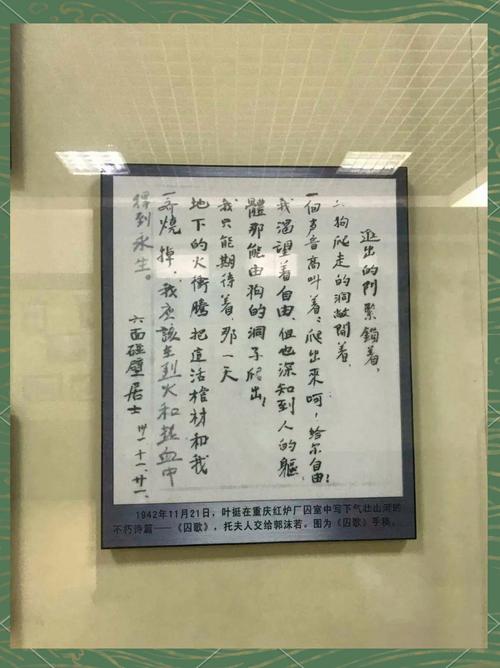 逃出的門緊鎖着,
狗爬走的洞敞開着,
一個声音高叫着:爬出來呵,給尔自由!
我渴望着自由,但也深知到人的軀
體那能由狗的洞子爬出!
我只能期待着,那一天
地下的火衝騰,把這活棺材和我
一齊燒掉,我应該在烈火和热血中
得到永生。
六面碰壁居士 卅一、十一、廿一.
1942年11月21日,叶挺在重庆红炉厂囚室中写下气壮山河的
不朽诗篇——《囚歌》,托夫人交给郭沫若。图为《囚歌》手稿。